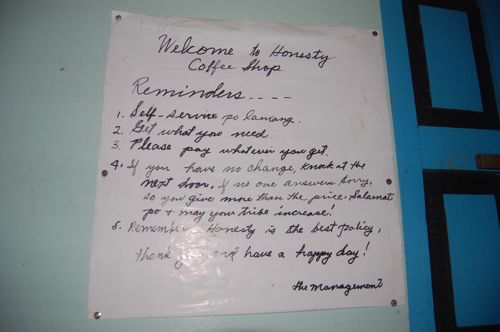 Welcome to Honesty
Coffee Shop
Reminders....
1. Self-service po lamang.
2. Get what you need
3. Please pay whatever you get.
4. If you have no change, knock at the
next door. If no one answers sorry,
do you give more than the price. Salamat
po & may your tribe increase!
5. Remember Honesty is the best policy,
thank you and have a happy day!
The Management